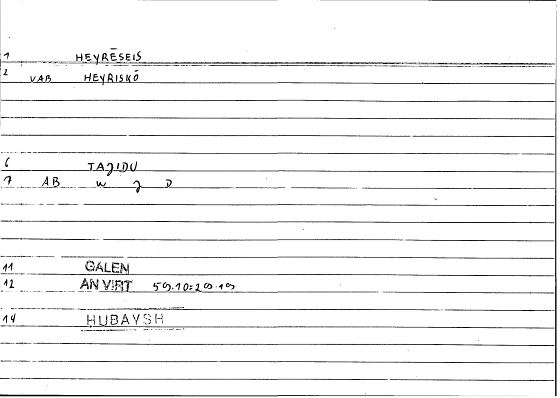 1 HEYRĒSEIS
2 VAB HEYRISKŌ
6 TAJIDU
7 AB W J D
11 GALEN
12 AN VIRT
14 HUBAYSH